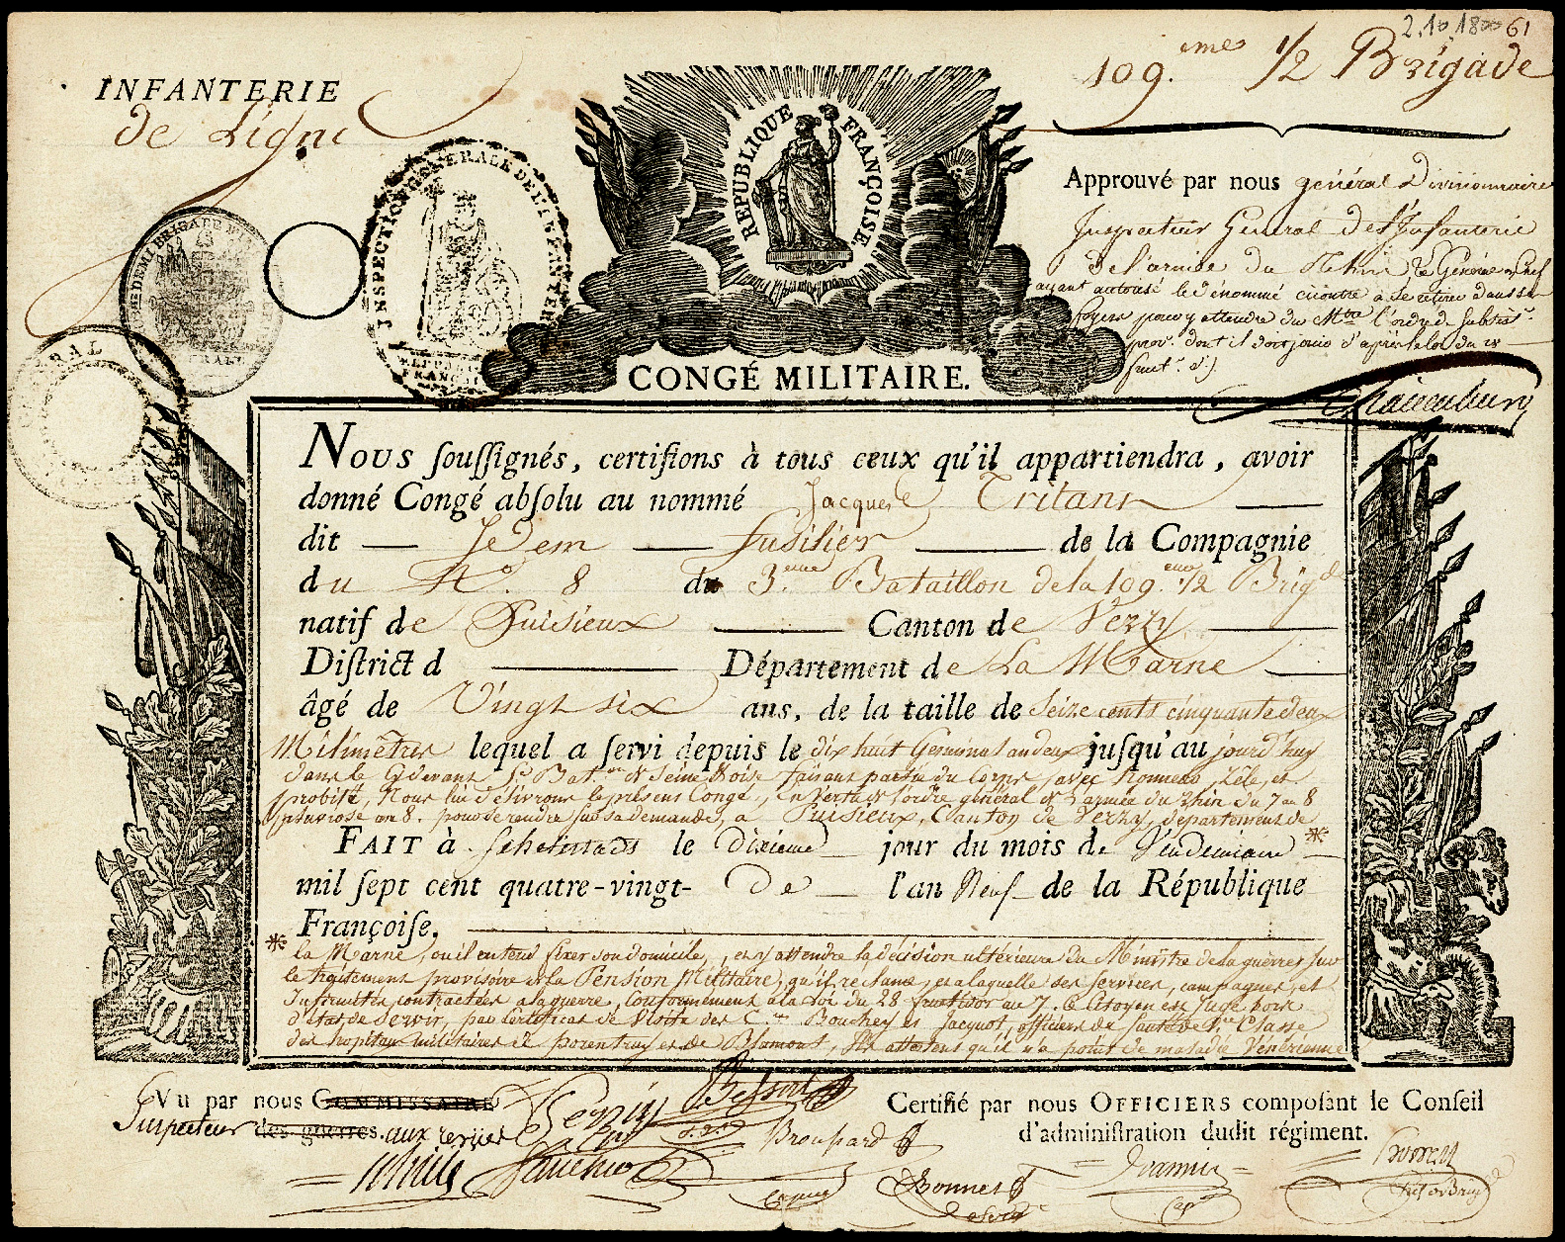 2.10.1800 61
INFANTERIE
de Ligne
109.eme 1/2 Brigade
RÉPUBLIQUE FRANÇOISE
INSPECTION GÉNÉRALE DE L'INFANTERIE
RÉPUBLIQUE
FRANÇAISE
Approuvé par nous général Divisionnaire
Inspecteur Général de l'Infanterie
de l'armée du Rhin le Général en chef
ayant autorisé le dénommé ci contre à se retirer dans ses
foyers pour y attendre du Mtre l'ordre de subsist.
prov. dont il doit jouir d'après la loi du 28
fruct. d.7
CONGÉ MILITAIRE.
Nous ſouſſignés, certifions à tous ceux qu'il appartiendra, avoir
donné Congé abſolu au nommé Jacques Tritant
dit Idem fusilier de la Compagnie
du N.o 8 du 3.eme Bataillon de la 109.eme 1/2 Brigde
natif de Puisieux Canton de Verzy
Diſtrict d Département de La Marne
âgé de Vingt six ans, de la taille de Seize cents cinquante deux
Milimètres lequel a ſervi depuis le dix huit Germinal an deux juſqu'au jourd'huy
dans le cydevant Bat.on de Seine Oise faisant partie du Corps avec honneur, Zèle, et
probité, Nous lui délivrons le présent Congé, en vertu de l'ordre général de l'armée du Rhin du 7 au 8
pluviose an 8. pour se rendre sur sa demande, à Puisieux, Canton de Verzy, département de *
FAIT à le dixieme jour du mois de Vendemiaire
mil ſept cent quatre-vingt- De l'an Neuf de la République
Françoiſe.
* la Marne, où il entend fixer son domicile, et y attendre la décision ultérieure du Ministre de la guerre, sur
le traitement provisoire et la Pension Militaire, qu'il réclame, et à laquelle ses services, campagnes, et
Infirmités contractées à la guerre, conformément à la Loi du 28 fructidor an 7. le Citoyen est jugé hors
d'état de servir, par certificat de Visite des C.ens Bouchey et Jacquot, officiers de santé de 1re Classe
des hopitaux militaires de porentruy et de Blamont, Ils attestent qu'il n'a point de maladie Vénérienne
Vu par nous COMMISSAIRE
Inspecteur des guerres. aux revües
Certifié par nous OFFICIERS compoſant le Conſeil
d'adminiſtration dudit régiment.
Broussard
Bonnet